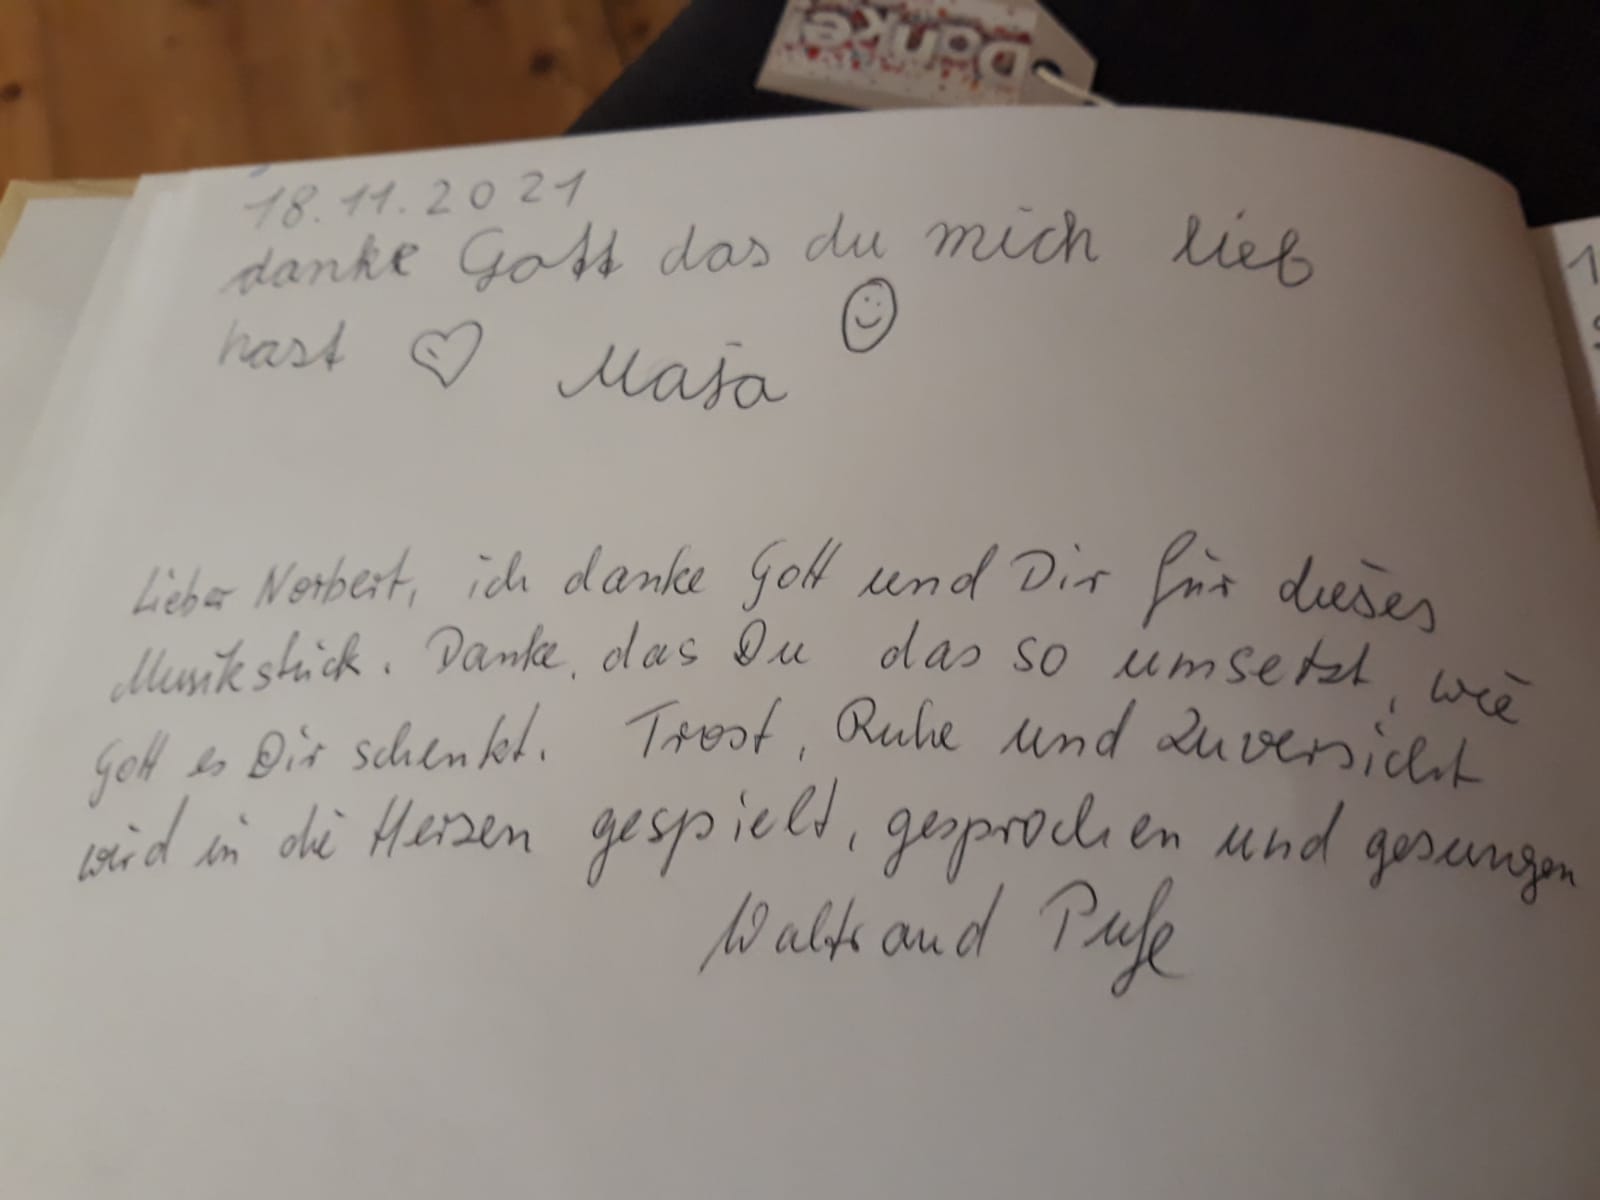 Danke
18.11.2021
danke Gott das du mich lieb
hast Maja
Lieber Norbert, ich danke Gott und Dir für dieses
Musikstück. Danke, das Du das so umsetzt, wie
Gott es Dir schenkt. Trost, Ruhe und Zuversicht
wird in die Herzen gespielt, gesprochen und gesungen
Waltraud